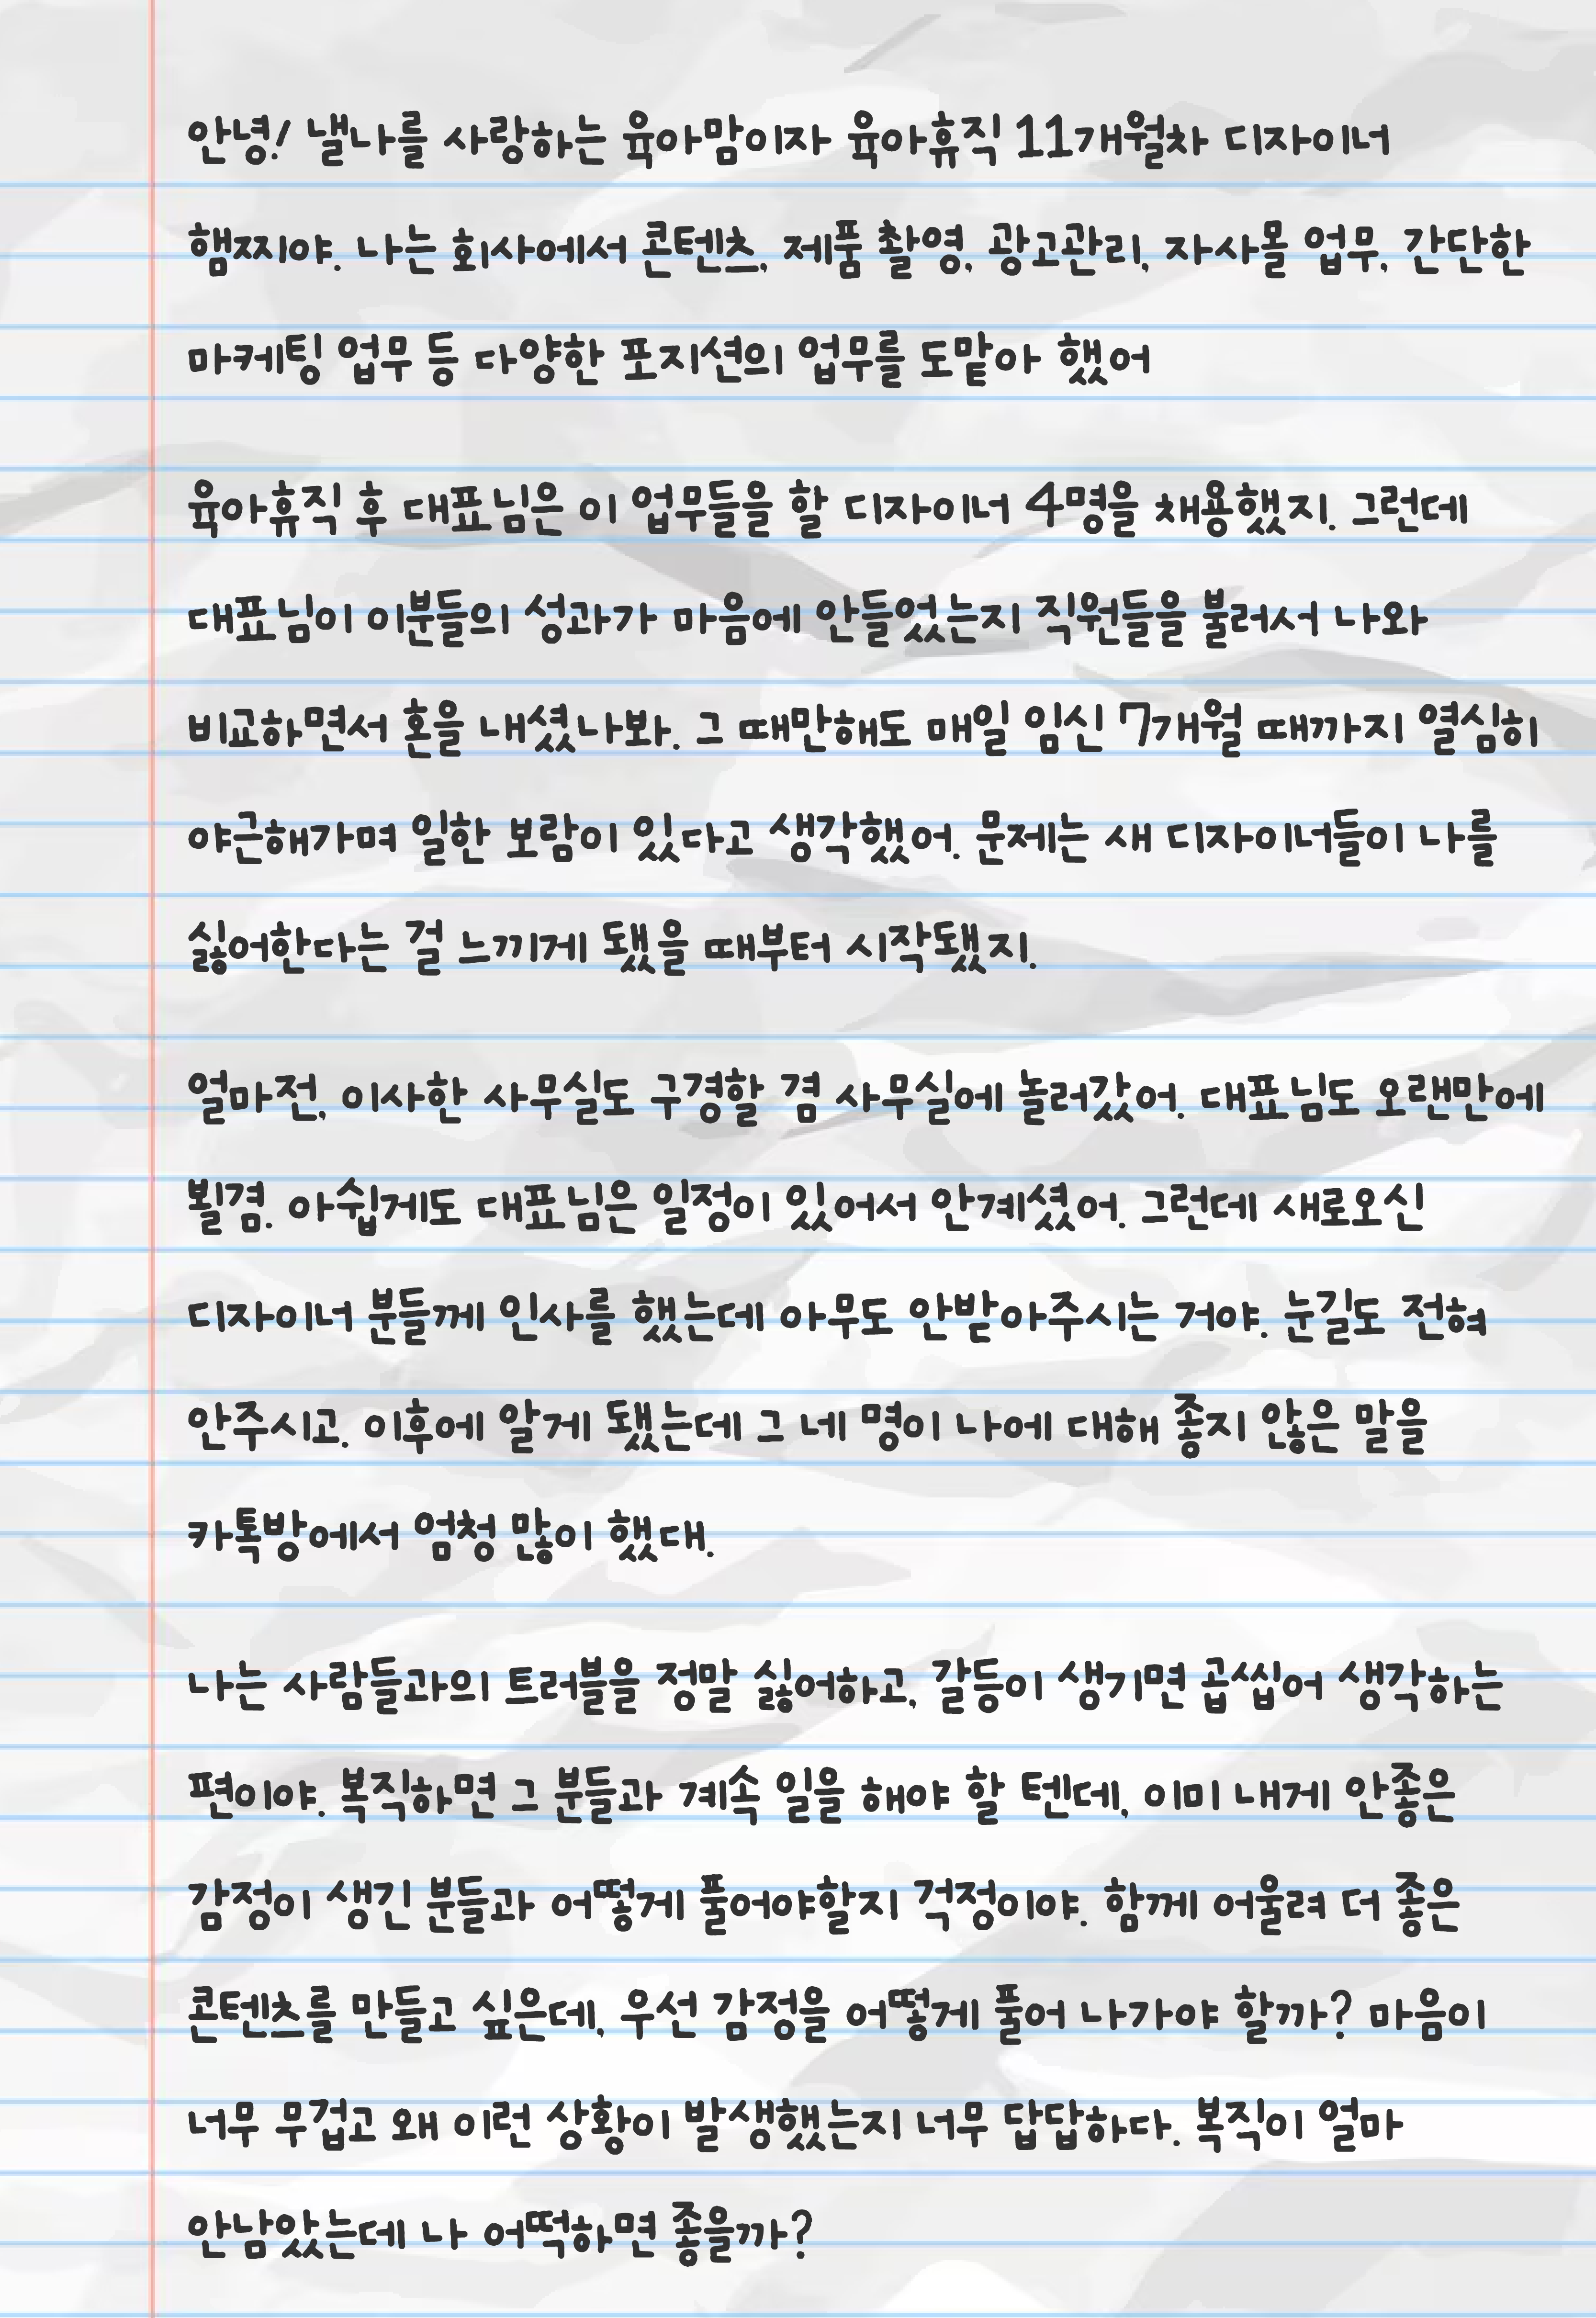 안녕! 낼나를 사랑하는 육아맘이자 육아휴직 11개월차 디자이너
햄찌야. 나는 회사에서 콘텐츠, 제품 촬영, 광고관리, 자사몰 업무, 간단한
마케팅 업무 등 다양한 포지션의 업무를 도맡아 했어
육아휴직 후 대표님은 이 업무들을 할 디자이너 4명을 채용했지. 그런데
대표님이 이분들의 성과가 마음에 안들었는지 직원들을 불러서 나와
비교하면서 혼을 내셨나봐. 그 때만해도 매일 임신 7개월 때까지 열심히
야근해가며 일한 보람이 있다고 생각했어. 문제는 새 디자이너들이 나를
싫어한다는 걸 느끼게 됐을 때부터 시작됐지.
얼마전, 이사한 사무실도 구경할 겸 사무실에 놀러갔어. 대표님도 오랜만에
뵐겸. 아쉽게도 대표님은 일정이 있어서 안계셨어. 그런데 새로오신
디자이너 분들께 인사를 했는데 아무도 안받아주시는 거야. 눈길도 전혀
안주시고. 이후에 알게 됐는데 그 네 명이 나에 대해 좋지 않은 말을
카톡방에서 엄청 많이 했대.
나는 사람들과의 트러블을 정말 싫어하고, 갈등이 생기면 곱씹어 생각하는
편이야. 복직하면 그 분들과 계속 일을 해야 할 텐데, 이미 내게 안좋은
감정이 생긴 분들과 어떻게 풀어야할지 걱정이야. 함께 어울려 더 좋은
콘텐츠를 만들고 싶은데, 우선 감정을 어떻게 풀어 나가야 할까? 마음이
너무 무겁고 왜 이런 상황이 발생했는지 너무 답답하다. 복직이 얼마
안남았는데 나 어떡하면 좋을까?